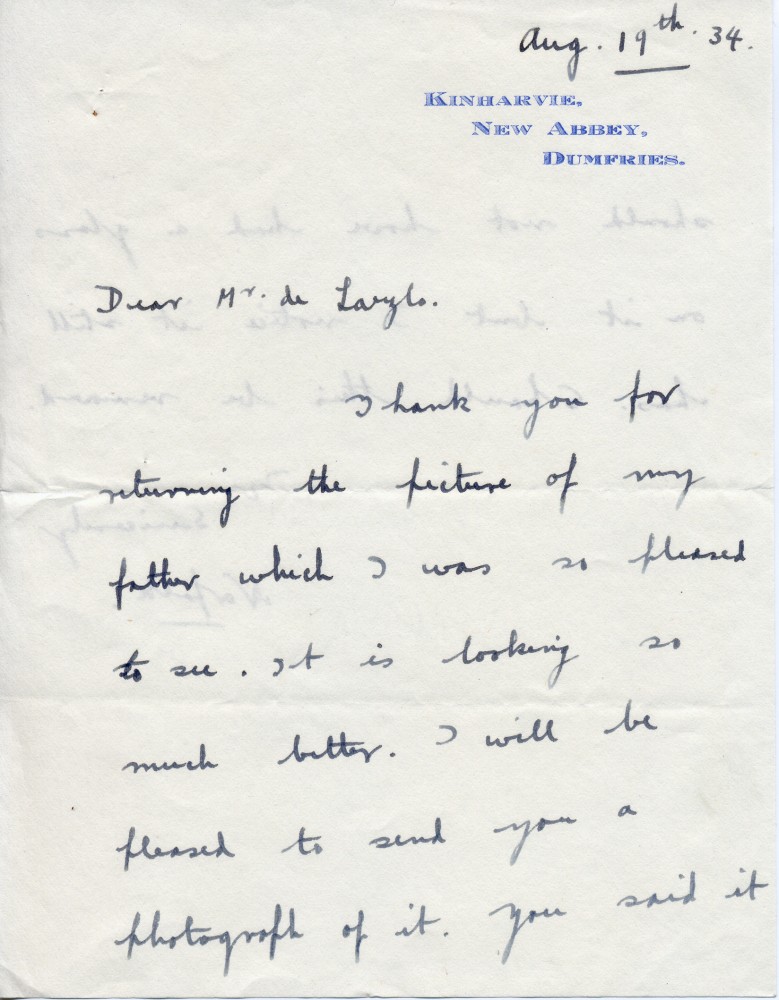 Aug. 19th. 34.
KINHARVIE,
NEW ABBEY,
DUMFRIES.
Dear Mr. de Laszlo.
Thank you for
returning the picture of my
father which I was so pleased
to see. It is looking so
much better. I will be
pleased to send you a
photograph of it. You said it